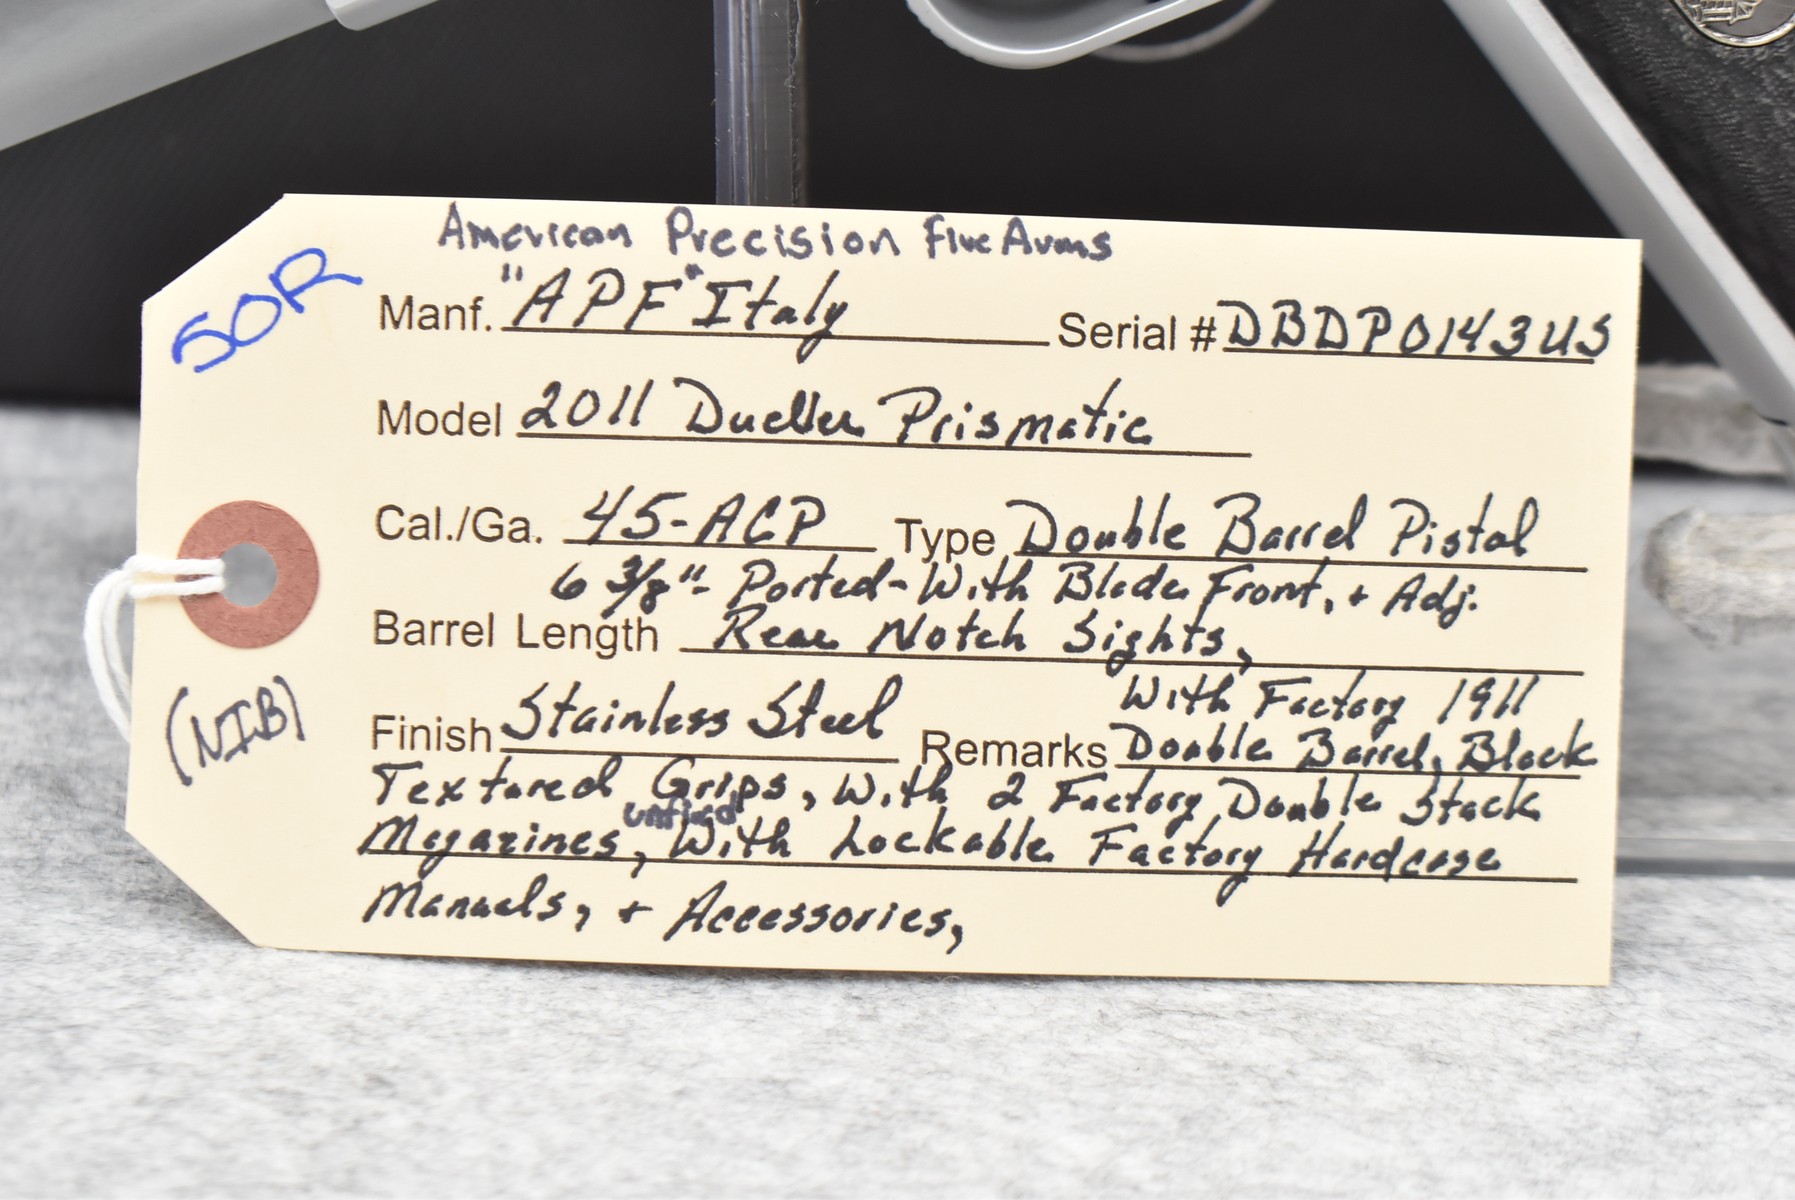 American Precision FireArms
50R
Manf. "APF" Italy Serial # DBDP0143US
Model 2011 Dueller Prismatic
Cal./Ga. 45-ACP Type Double Barrel Pistol
6 3/8"- Ported-With Blade Front, + Adj.
Barrel Length Rear Notch Sights,
With Factory 1911
Finish Stainless Steel Remarks Double Barrel, Black
(NIB)
Textured Grips, With 2 Factory Double Stack
unfired
Magazines, With Lockable Factory Hardcase
Manuals, + Accessories,